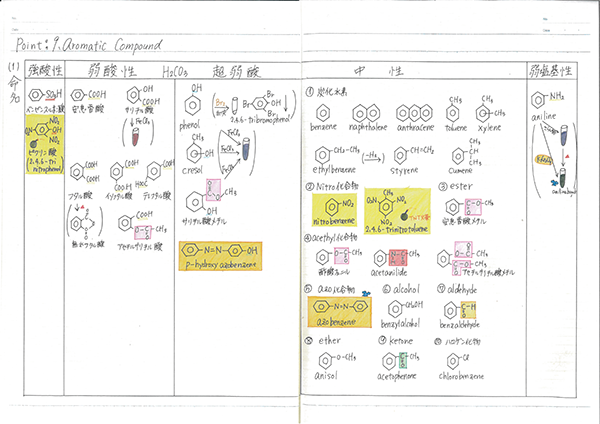 Point: 9. Aromatic Compound
(1) 命名
強酸性
弱酸性
H₂CO₃
超弱酸
中性
弱塩基性
SO₃H
ベンゼンスルホン酸
O₂N
OH
NO₂
NO₂
ピクリン酸
(2.4.6-tri
nitrophenol)
COOH
安息香酸
OH
COOH
サリチル酸
FeCl₃
COOH
COOH
フタル酸
COOH
COOH
イソフタル酸
COOH
HOOC
テレフタル酸
無水フタル酸
COOH
O-C-CH₃
O
アセチルサリチル酸
OH
phenol
Br₂
OH
Br
Br
Br
2.4.6-tribromophenol
CH₃
OH
cresol
FeCl₃
FeCl₃
FeCl₃
C-O-CH₃
O
OH
サリチル酸メチル
N=N
OH
p-hydroxy azobenzene
① 炭化水素
benzene
naphthalene
anthracene
CH₃
toluene
CH₃
CH₃
xylene
CH₂-CH₃
ethylbenzene
(-H₂)
CH=CH₂
styrene
CH₃
CH-CH₃
Cumene
② Nitro化合物
NO₂
nitrobenzene
CH₃
O₂N
NO₂
NO₂
TNT火薬
2.4.6-trinitrotoluene
③ ester
C-O-CH₃
O
安息香酸メチル
④ acethyl化合物
O-C-CH₃
O
酢酸フェニル
N-C-CH₃
H O
acetanilide
C-O-CH₃
O
O-C-CH₃
O
アセチルサリチル酸メチル
⑤ azo化合物
N=N
azobenzene
⑥ alcohol
CH₂OH
benzylalcohol
⑦ aldehyde
C-H
O
benzaldehyde
⑧ ether
O-CH₃
anisol
⑨ ketone
C-CH₃
O
acetophenone
⑩ ハロゲン化物
Cl
chlorobenzene
NH₂
aniline